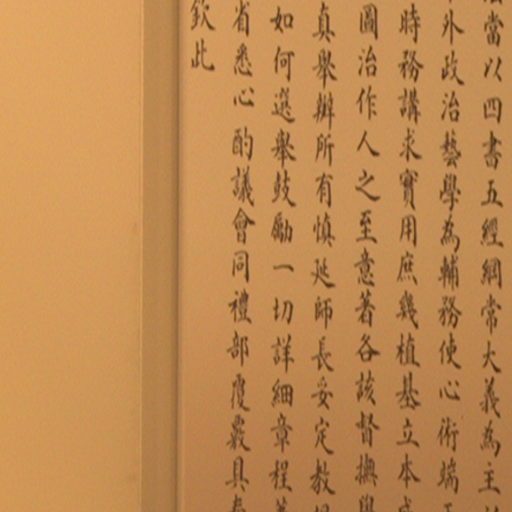 當以四書五經綱常大義為主
外政治藝學為輔務使心術端
時務講求實用庶幾植基立本
圖治作人之至意著各該督撫學
真舉辦所有慎延師長妥定教
如何選舉鼓勵一切詳細章程
省悉心酌議會同禮部覆覈具奏
欽此